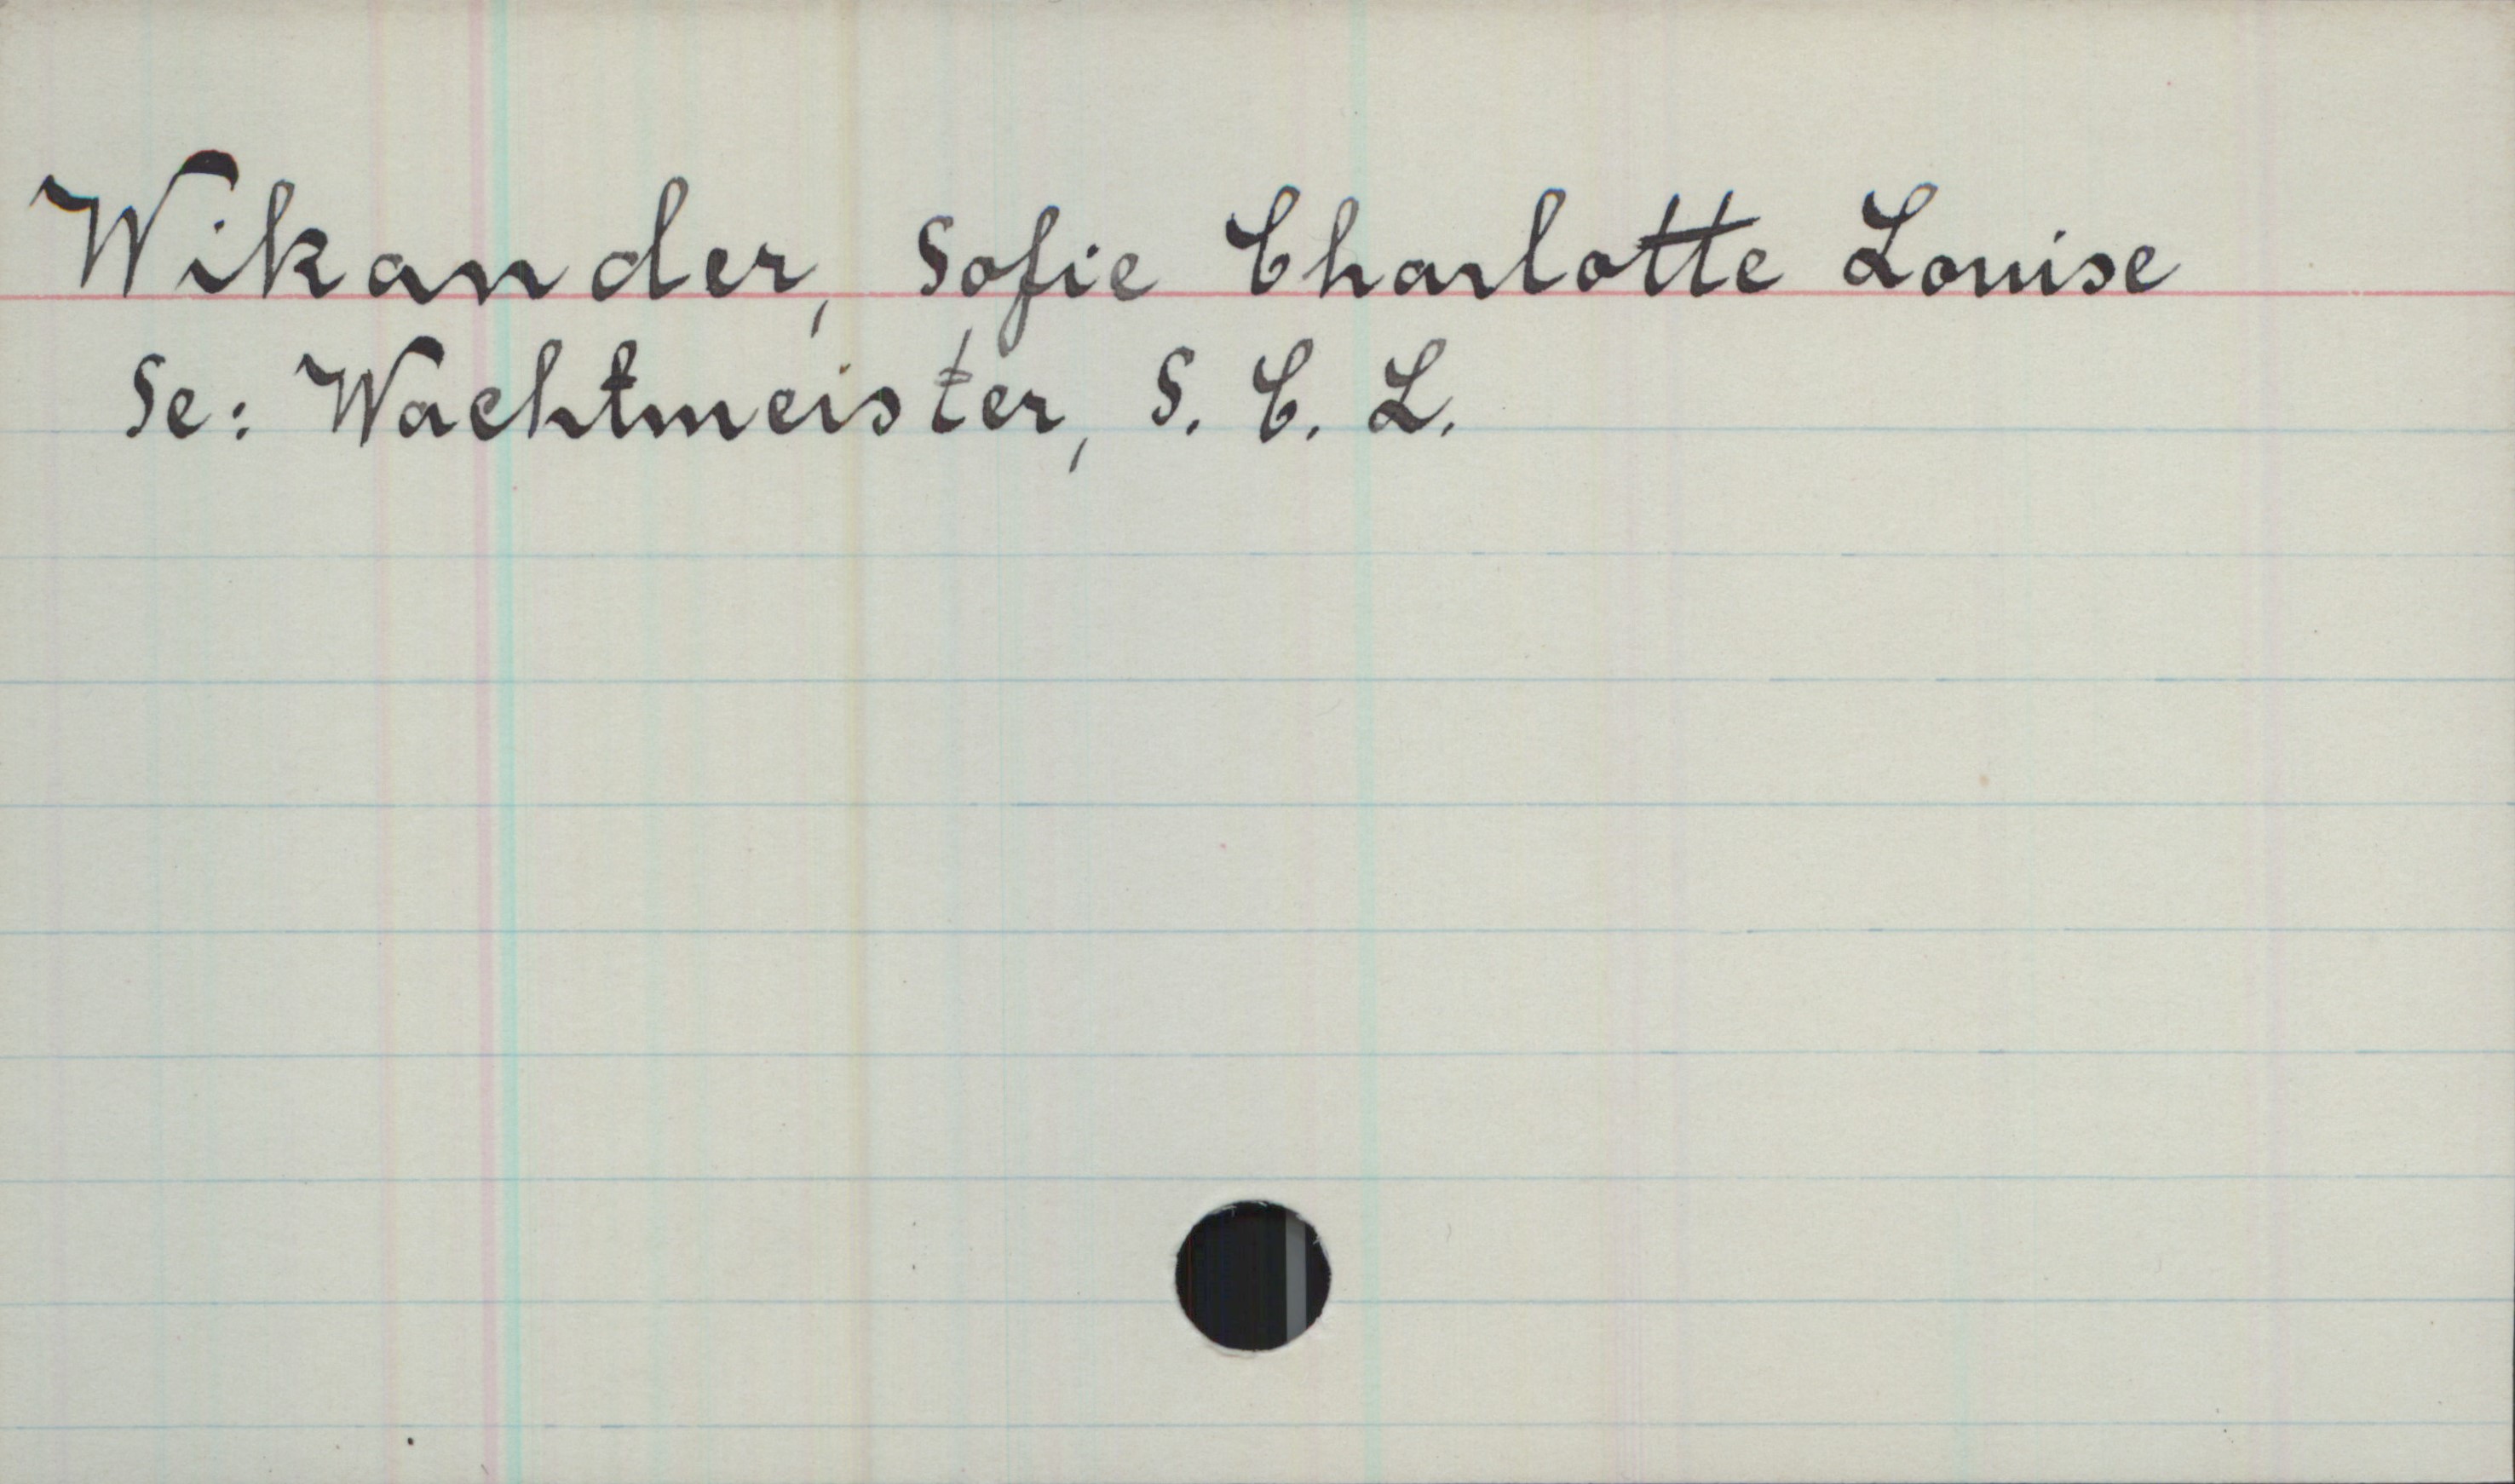 Wikander, Sofie Charlotte Louise
Se: Wachtmeister, S. C. L.